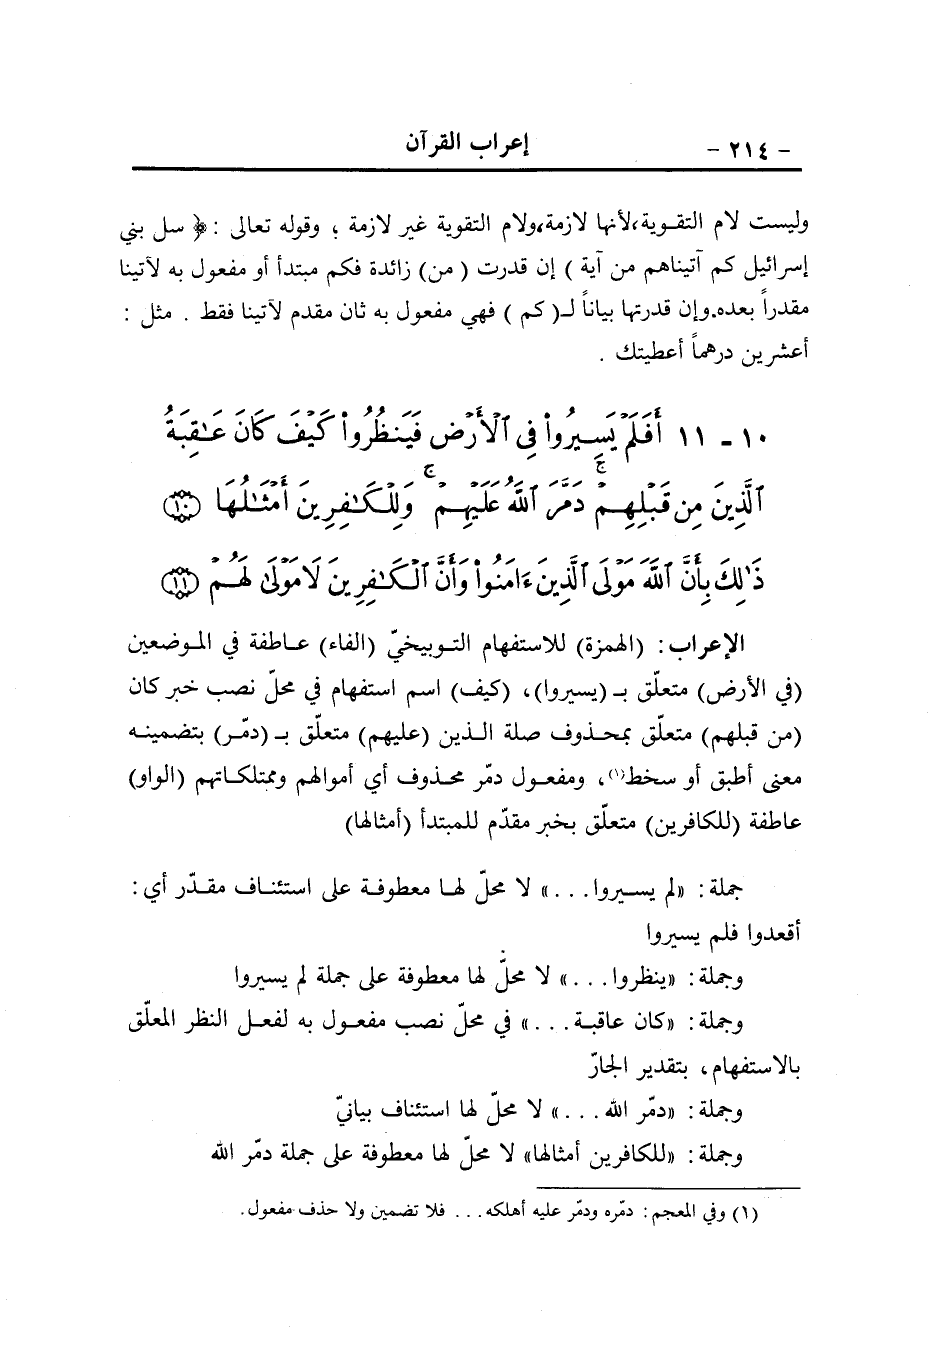 - ٢١٤ - إعراب القرآن
وليست لام التقـوية،لأنها لازمة،ولام التقوية غير لازمة ؛ وقوله تعالى :﴿ سل بني
إسرائيل كم آتيناهم من آية ) إن قدرت ( من) زائدة فكم مبتدأ أو مفعول به لآتينا
مقدراً بعده.وإن قدرتها بياناً لـ( كم ) فهي مفعول به ثان مقدم لآتينا فقط . مثل :
أعشرين درهماً أعطيتك .
١٠ - ١١ أَفَلَمْ يَسِيرُوا۟ فِى ٱلْأَرْضِ فَيَنظُرُوا۟ كَيْفَ كَانَ عَـٰقِبَةُ
ٱلَّذِينَ مِن قَبْلِهِمْ ۚ دَمَّرَ ٱللَّهُ عَلَيْهِمْ ۚ وَلِلْكَـٰفِرِينَ أَمْثَـٰلُهَا ﴿١٠﴾
ذَٰلِكَ بِأَنَّ ٱللَّهَ مَوْلَى ٱلَّذِينَ ءَامَنُوا۟ وَأَنَّ ٱلْكَـٰفِرِينَ لَا مَوْلَىٰ لَهُمْ ﴿١١﴾
الإعراب: (الهمزة) للاستفهام التـوبيخيّ (الفاء) عـاطفة في المـوضعين
(في الأرض) متعلّق بـ (يسيروا)، (كيف) اسم استفهام في محلّ نصب خبر كان
(من قبلهم) متعلّق بمحـذوف صلة الـذين (عليهم) متعلّق بـ (دمّـر) بتضمينـه
معنى أطبق أو سخط(١)، ومفعـول دمّر محـذوف أي أموالهم وممتلكـاتهم (الواو)
عاطفة (للكافرين) متعلّق بخبر مقدّم للمبتدأ (أمثالها)
جملة: «لم يسـيروا...» لا محلّ لهـا معطوفـة على استئنـاف مقـدّر أي:
أقعدوا فلم يسيروا
وجملة: «ينظروا...» لا محلّ لها معطوفة على جملة لم يسيروا
وجملة: «كان عاقبـة...» في محلّ نصب مفعـول به لفعـل النظر المعلّق
بالاستفهام، بتقدير الجارّ
وجملة: «دمّر الله...» لا محلّ لها استئناف بيانيّ
وجملة: «للكافرين أمثالها» لا محلّ لها معطوفة على جملة دمّر الله
(١) وفي المعجم: دمّره ودمّر عليه أهلكه... فلا تضمين ولا حذف مفعول.